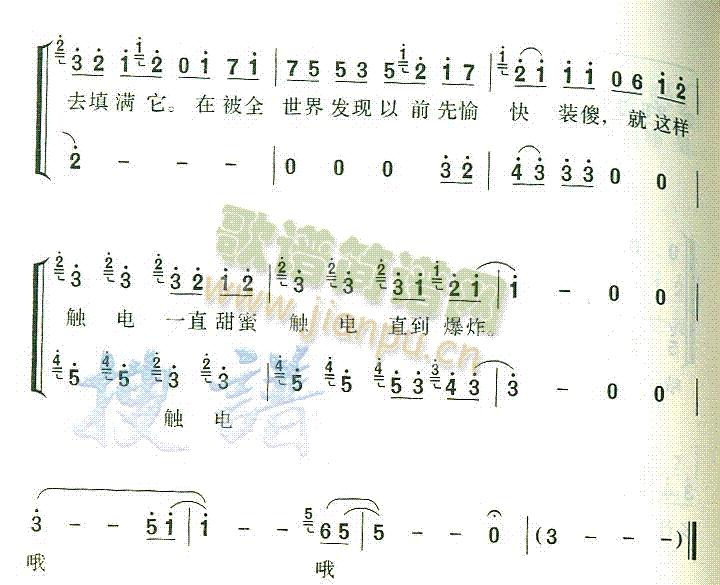 2 3 2 1 1 2 0 1 7 1 | 7 5 5 3 5 1 2 1 7 | 1 2 1 1 1 0 6 1 2 |
去填满它。在被全 世界发现以前先愉 快 装傻，就这样
2 - - - | 0 0 0 3 2 | 4 3 3 3 0 0 |
歌谱简谱网
www.jianpu.cn
2 3 2 3 2 3 2 1 2 | 2 3 2 3 2 3 1 1 2 1 | 1 - 0 0 |
触 电 一直甜蜜 触 电 直到 爆炸。
4 5 4 5 2 3 2 3 | 4 5 4 5 4 5 3 3 4 3 | 3 - 0 0 |
触 电
搜谱
3 - - 5 1 | 1 - - 5 6 5 | 5 - - 0 | (3 - - -)
哦 哦